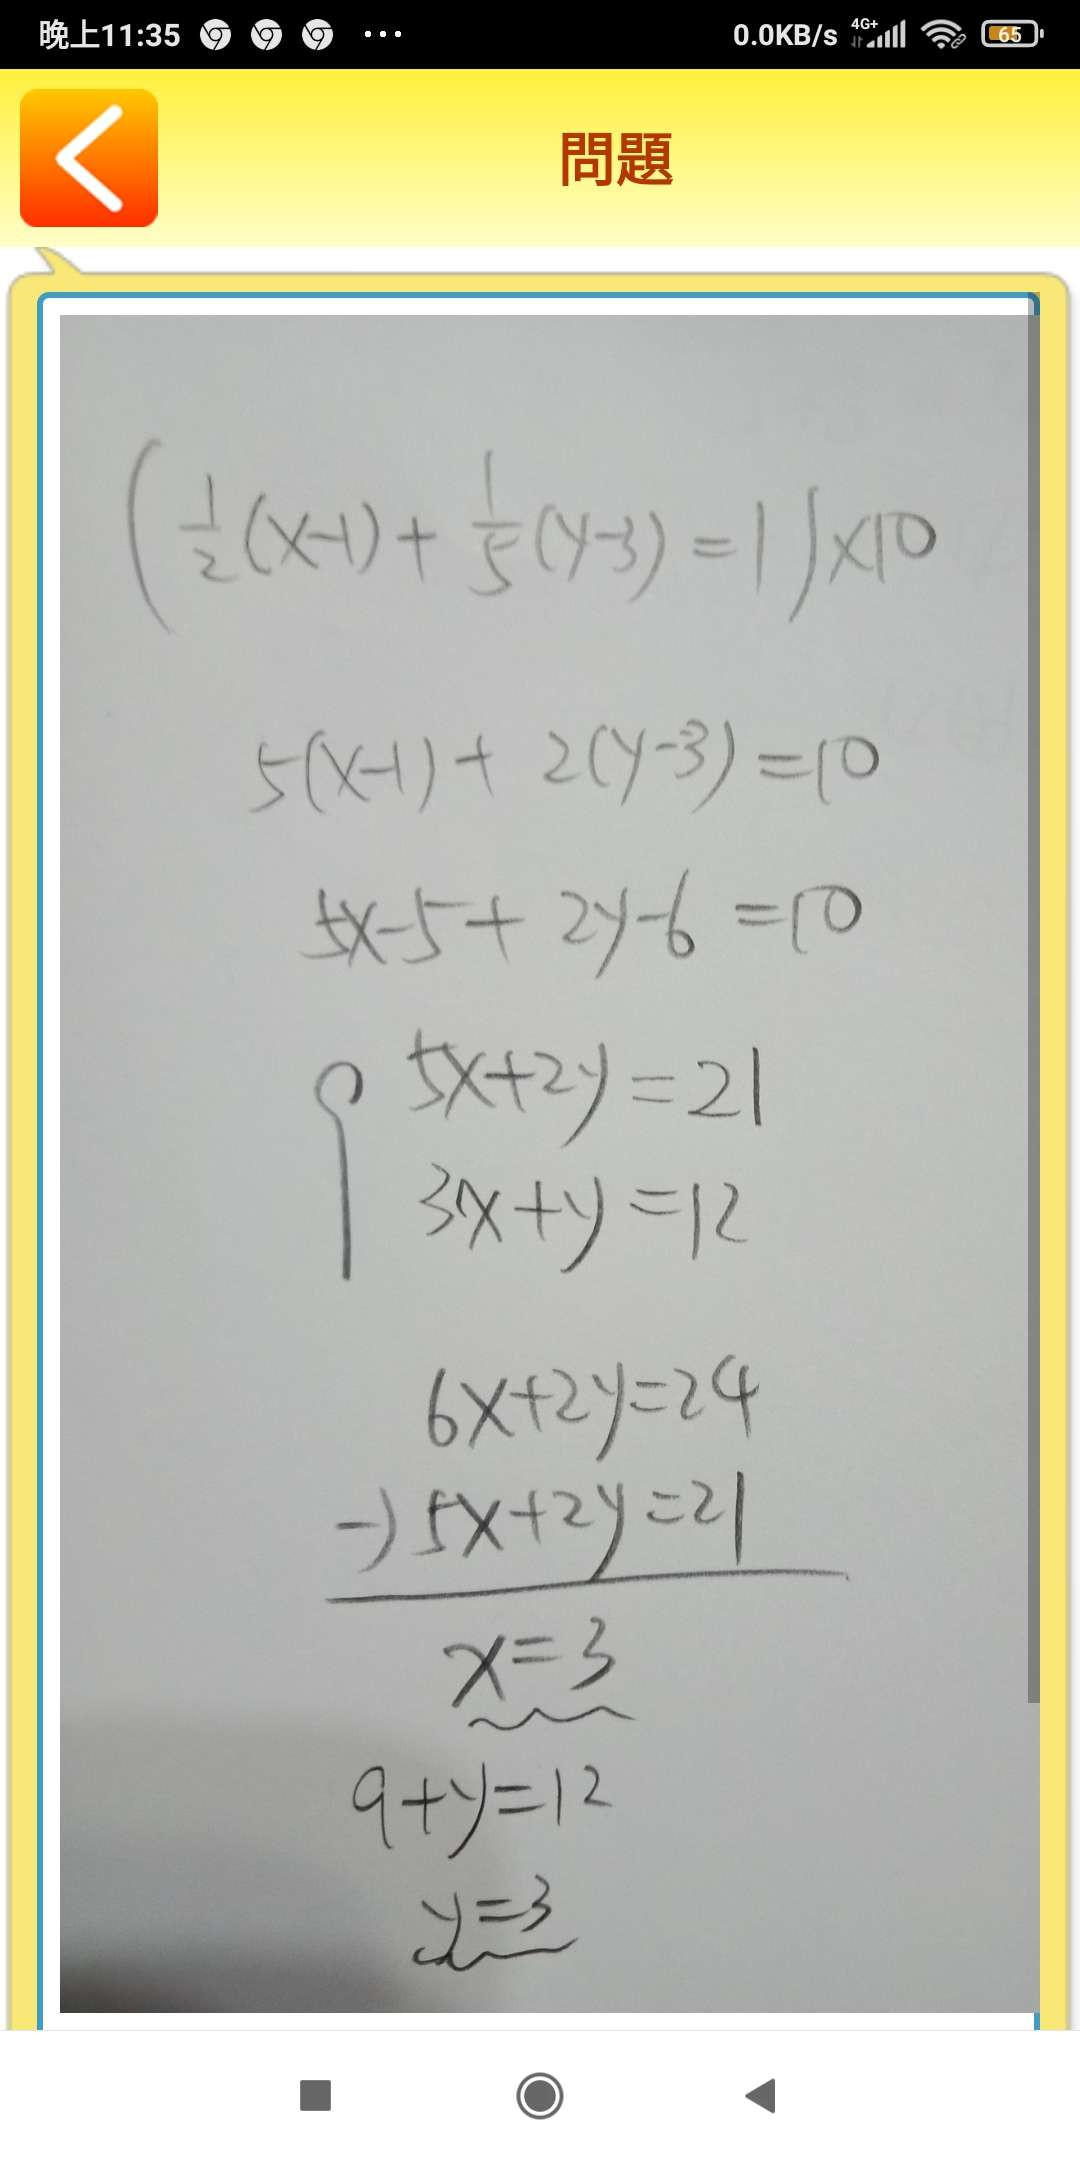 晚上11:35 ... 0.0KB/s 4G+ 65
問題
(1/2(x-1)+1/5(y-3)=1)×10
5(x-1)+2(y-3)=10
5x-5+2y-6=10
5x+2y=21
3x+y=12
6x+2y=24
-)5x+2y=21
x=3
9+y=12
y=3